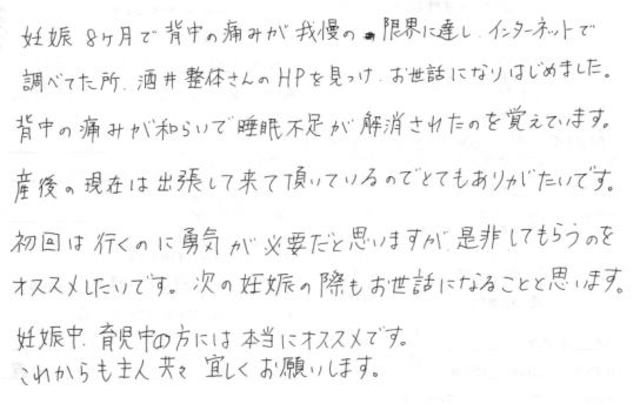 妊娠8ヶ月で背中の痛みが我慢の限界に達し、インターネットで
調べてた所、酒井整体さんのHPを見つけ、お世話になりはじめました。
背中の痛みが和らいで睡眠不足が解消されたのを覚えています。
産後の現在は出張して来て頂いているのでとてもありがたいです。
初回は行くのに勇気が必要だと思いますが、是非してもらうのを
オススメしたいです。次の妊娠の際もお世話になることと思います。
妊娠中、育児中の方には本当にオススメです。
これからも主人共々宜しくお願いします。